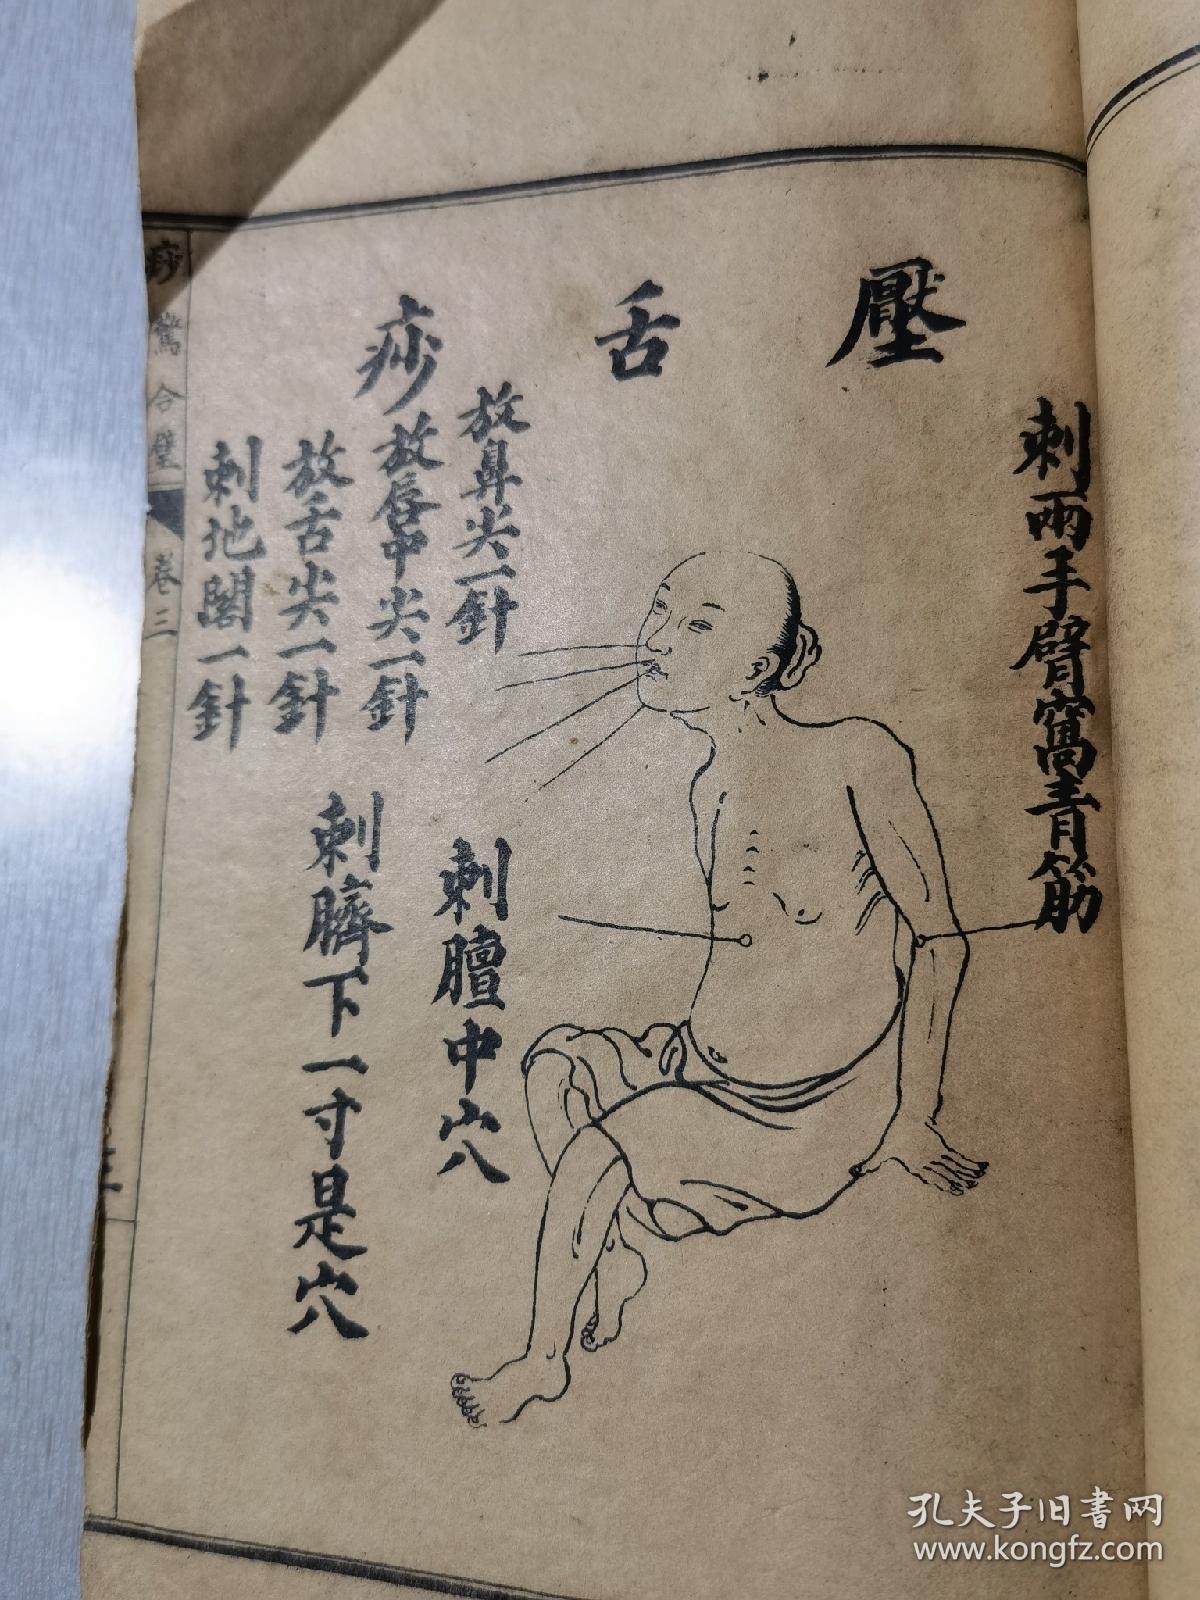 壓舌痧
刺兩手臂窩青筋
放鼻尖一針
放唇中尖一針
放舌尖一針
刺地閣一針
刺膻中穴
刺臍下一寸是穴
痧驚合璧
卷三
三
孔夫子旧书网
www.kongfz.com